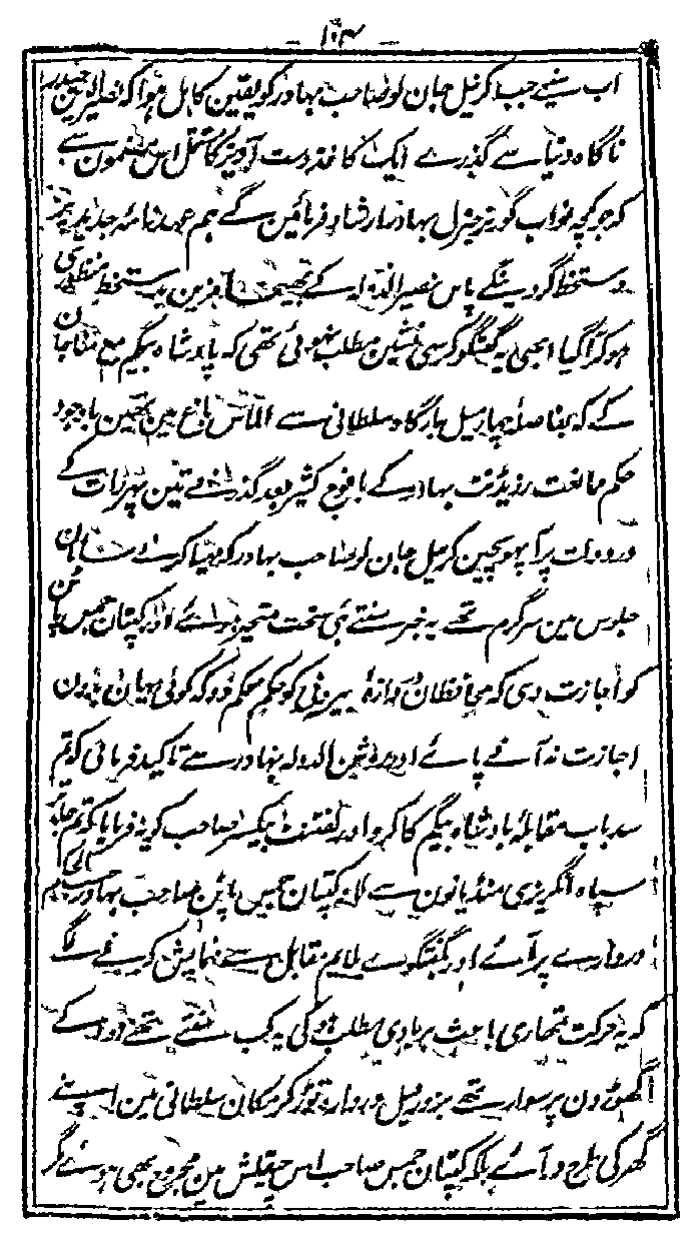 ۱۰۴
اب سنیے جب کرنیل جان لو صاحب بہادر کو یقین کامل ہوا کہ نصیر الدین حیدر
ناگاہ دنیا سے گذرے ایک کاغذ دست آویز کا مشتمل اس مضمون سے
کہ جو کچھ نواب گورنر جنرل بہادر ارشاد فرمائین گے ہم عہد نامہ جدید پر
دستخط کر دینگے پاس نصیر الدولہ کے بھیجا آخرین بدستخط منظوری
ہو کر آگیا ابھی یہ گفتگو کرسی نشین مطلب نہوئی تھی کہ پادشاہ بیگم مع منا جان
کے کہ بفاصلہ چار میل بارگاہ سلطانی سے الماس باغ مین تھین باوجود
حکم ممانعت رزیڈنٹ بہادر کے با فوج کثیر بعد گذرنے تین پہر رات کے
در دولت پر آ پہونچین کرنیل جان لو صاحب بہادر کہ مہیا کرنے سامان
جلوس مین سرگرم تھے یہ خبر سنتے ہی سخت متحیر ہوئے اور کپتان جمس پاٹن
کو اجازت دی کہ محافظان دروازۂ بیرونی کو حکم محکم دو کہ کوئی یہان بدون
اجازت نہ آنے پائے اور روشن الدولہ بہادر سے تاکید فرمائی کہ تم
سد باب مقابلہ بادشاہ بیگم کا کرو اور لفٹنٹ صاحب کو یہ فرمایا کہ تم جا کر
سپاہ انگریزی منڈیانون سے لاؤ کپتان جمس پاٹن صاحب بہادر
دروازے پر آئے اور گفتگوے ملایم مقابل سے فہمایش کرنے لگے
کہ یہ حرکت تمھاری باعث بربادی مطلب ہوگی یہ کب سنتے تھے
گھوڑون پر سوار تھے بزور فیل دروازہ توڑ کر مکان سلطانی مین اپنے
گھر کی طرح در آئے بلکہ کپتان جمس صاحب اس چپقلش مین مجروح بھی ہوئے مگر